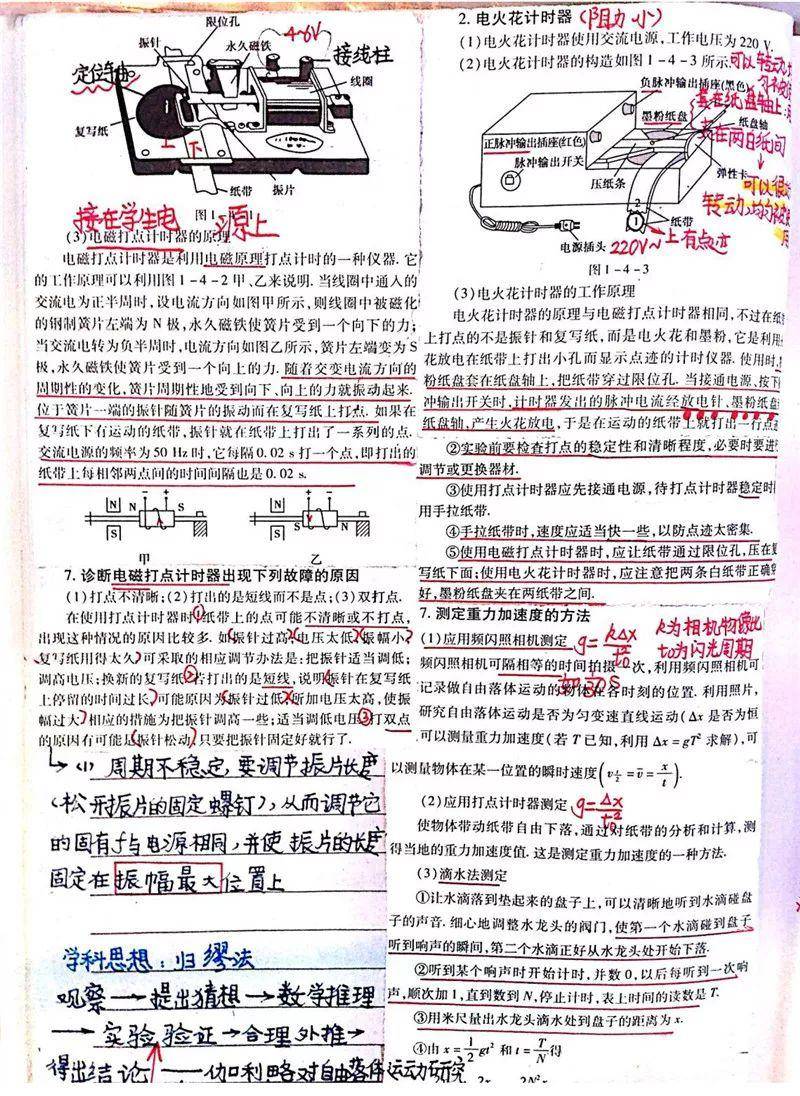 限位孔
振针
永久磁铁
4~6V
接线柱
定位轴
线圈
复写纸
上
下
纸带
振片
接在学生电源上
(3)电磁打点计时器的原理
电磁打点计时器是利用电磁原理打点计时的一种仪器. 它
的工作原理可以利用图1-4-2甲、乙来说明. 当线圈中通入的
交流电为正半周时, 设电流方向如图甲所示, 则线圈中被磁化
的钢制簧片左端为 N 极, 永久磁铁使簧片受到一个向下的力;
当交流电转为负半周时, 电流方向如图乙所示, 簧片左端变为 S
极, 永久磁铁使簧片受到一个向上的力. 随着交变电流方向的
周期性的变化, 簧片周期性地受到向下、向上的力就振动起来.
位于簧片一端的振针随簧片的振动而在复写纸上打点. 如果在
复写纸下有运动的纸带, 振针就在纸带上打出了一系列的点.
交流电源的频率为 50 Hz 时, 它每隔 0.02 s 打一个点, 即打出的
纸带上每相邻两点间的时间间隔也是 0.02 s.
N N S
S
甲
N S
S
乙
7. 诊断电磁打点计时器出现下列故障的原因
(1)打点不清晰;(2)打出的是短线而不是点;(3)双打点.
在使用打点计时器时①纸带上的点可能不清晰或不打点,
出现这种情况的原因比较多. 如(振针过高)(电压太低)(振幅小)
(复写纸用得太久)可采取的相应调节办法是: 把振针适当调低;
调高电压; 换新的复写纸②若打出的是短线, 说明(振针在复写纸
上停留的时间过长)可能原因为(振针过低)(所加电压太高, 使振
幅过大)相应的措施为把振针调高一些; 适当调低电压③打双点
的原因有可能是(振针松动)只要把振针固定好就行了.
(1) 周期不稳定, 要调节振片长度
(松开振片的固定螺钉), 从而调节它
的固有f与电源相同, 并使振片的长度
固定在振幅最大位置上
学科思想: 归缪法
观察→提出猜想→数学推理
→实验验证→合理外推→
得出结论——伽利略对自由落体运动研究
2. 电火花计时器(阻力小)
(1)电火花计时器使用交流电源, 工作电压为 220 V.
(2)电火花计时器的构造如图1-4-3所示.
可以转动
负脉冲输出插座(黑色)
套在纸盘轴上
墨粉纸盘
纸盘轴
夹在两白纸间
正脉冲输出插座(红色)
脉冲输出开关
弹性卡
压纸条
可以很
转动
2
1
纸带
电源插头
220V~
上有点迹
图1-4-3
(3)电火花计时器的工作原理
电火花计时器的原理与电磁打点计时器相同, 不过在纸
上打点的不是振针和复写纸, 而是电火花和墨粉, 它是利用
花放电在纸带上打出小孔而显示点迹的计时仪器. 使用时,
粉纸盘套在纸盘轴上, 把纸带穿过限位孔. 当接通电源、按下
冲输出开关时, 计时器发出的脉冲电流经放电针、墨粉纸盘
纸盘轴, 产生火花放电, 于是在运动的纸带上就打出一行点
②实验前要检查打点的稳定性和清晰程度, 必要时要进
调节或更换器材.
③使用打点计时器应先接通电源, 待打点计时器稳定时
用手拉纸带.
④手拉纸带时, 速度应适当快一些, 以防点迹太密集.
⑤使用电磁打点计时器时, 应让纸带通过限位孔, 压在复
写纸下面; 使用电火花计时器时, 应注意把两条白纸带正确
好, 墨粉纸盘夹在两纸带之间.
7. 测定重力加速度的方法
(1)应用频闪照相机测定 g=kΔx/t₀² k为相机物像比
t₀为闪光周期
频闪照相机可隔相等的时间拍摄一次, 利用频闪照相机可
记录做自由落体运动的物体在各时刻的位置. 利用照片,
研究自由落体运动是否为匀变速直线运动(Δx 是否为恒
可以测量重力加速度(若 T 已知, 利用 Δx=gT² 求解), 可
以测量物体在某一位置的瞬时速度(v_{t/2}=v̄=x/t).
(2)应用打点计时器测定 g=Δx/t₀²
使物体带动纸带自由下落, 通过对纸带的分析和计算, 测
得当地的重力加速度值. 这是测定重力加速度的一种方法.
(3)滴水法测定
①让水滴落到垫起来的盘子上, 可以清晰地听到水滴碰盘
子的声音. 细心地调整水龙头的阀门, 使第一个水滴碰到盘子
听到响声的瞬间, 第二个水滴正好从水龙头处开始下落.
②听到某个响声时开始计时, 并数 0, 以后每听到一次响
声, 顺次加 1, 直到数到 N, 停止计时, 表上时间的读数是 T.
③用米尺量出水龙头滴水处到盘子的距离为 x.
④由 x=1/2gt² 和 t=T/N得